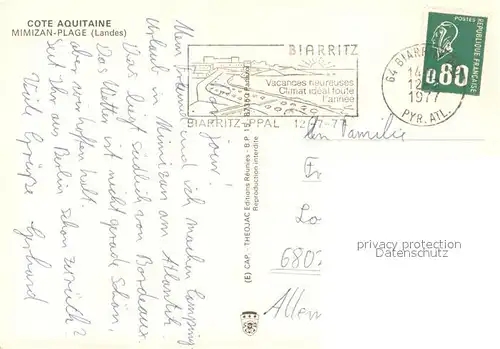 COTE AQUITAINE
MIMIZAN-PLAGE (Landes)
Bon jour!
Mein Freund und ich machen Camping
Urlaub in Mimizan am Atlantik.
Das liegt südlich von Bordeaux.
Das Wetter ist nicht gerade schön,
aber wir hoffen halt.
Seit Ihr aus Berlin schon zurück?
Viele Grüße Gerhard
BIARRITZ
Vacances heureuses
Climat idéal toute
l'année
BIARRITZ-PPAL 12-7-77
64 BIARRITZ
12
1977
PYR. ATL.
POSTES
REPUBLIQUE FRANÇAISE
0,80
(E) CAP - THEOJAC Editions Réunies - B.P.
Reproduction interdite
Familie
680
privacy protection
Datenschutz